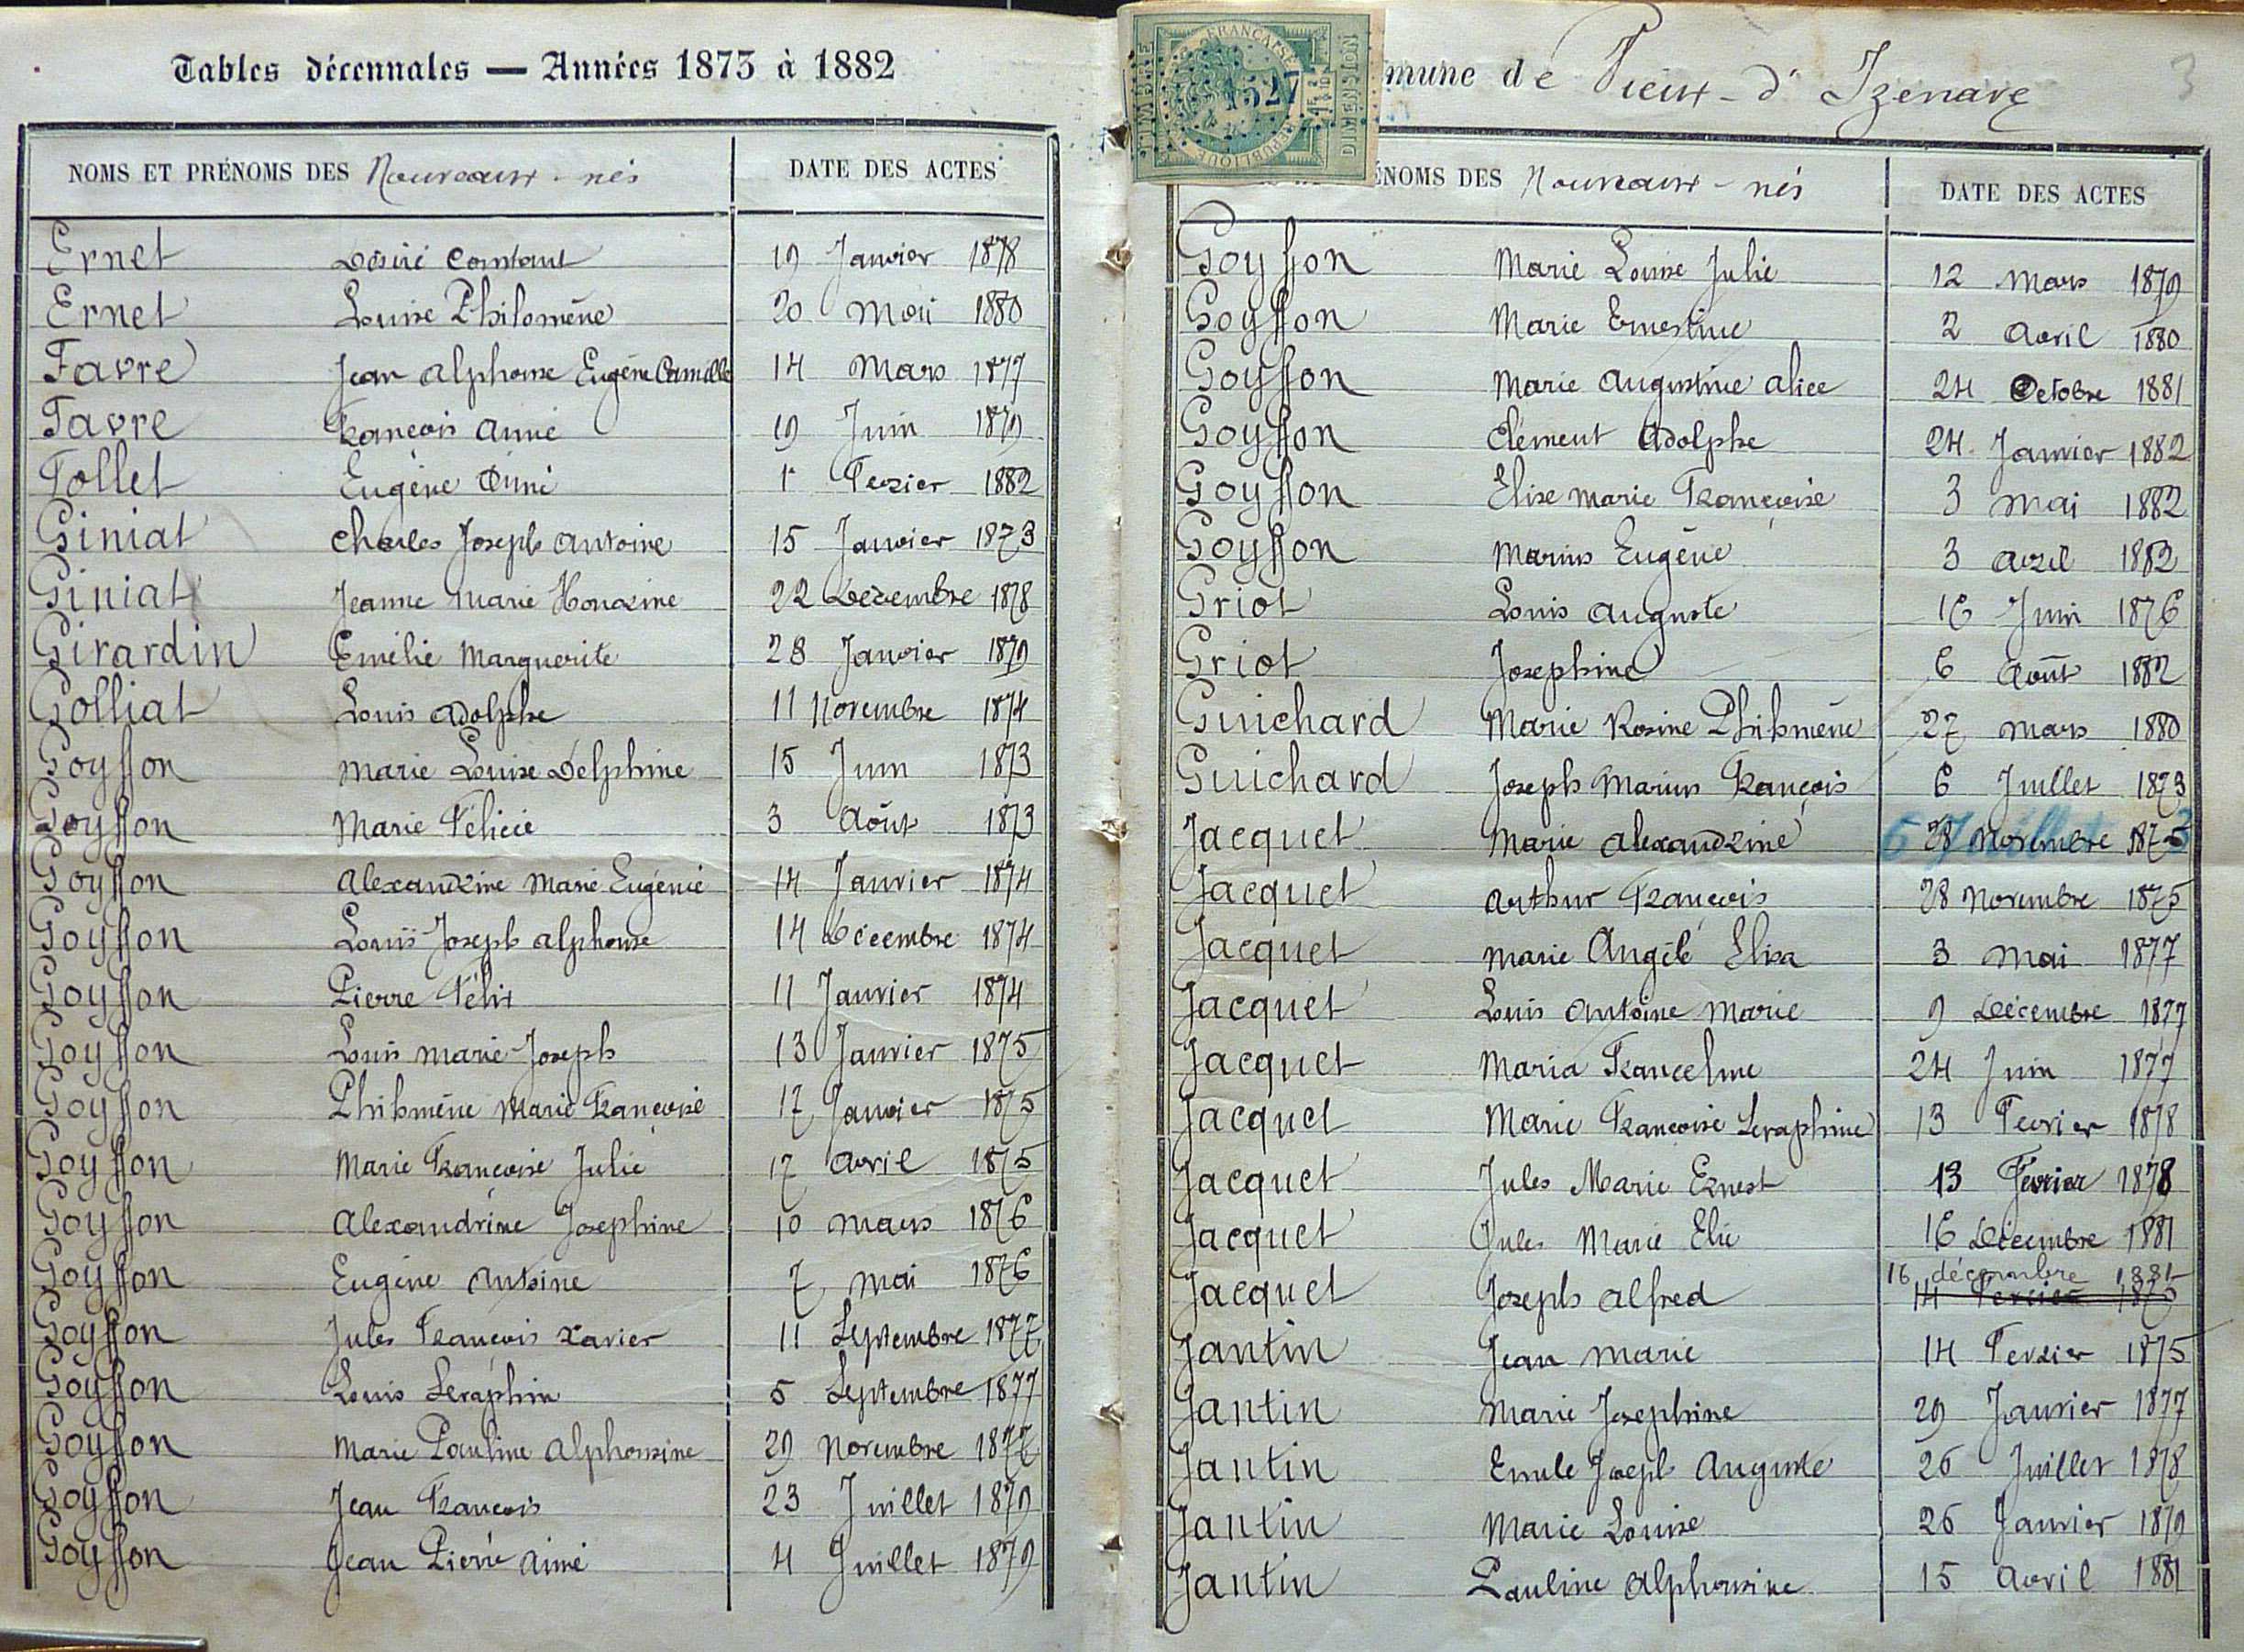 Tables décennales — Années 1873 à 1882
NOMS ET PRÉNOMS DES Nouveaux-nés DATE DES ACTES
Ernet Désiré Constant 19 Janvier 1878
Ernet Louise Philomène 20 Mai 1880
Favre Jean Alphonse Eugène Camille 14 Mars 1877
Favre François Aimé 19 Juin 1879
Follet Eugène Aimé 1r Fevrier 1882
Giniat Charles Joseph Antoine 15 Janvier 1873
Giniat Jeanne Marie Honorine 22 Décembre 1878
Girardin Emélie Marguerite 28 Janvier 1879
Golliat Louis Adolphe 11 Novembre 1874
Goyffon Marie Louise Delphine 15 Juin 1873
Goyffon Marie Félicie 3 Août 1873
Goyffon Alexandrine Marie Eugénie 14 Janvier 1874
Goyffon Louis Joseph Alphonse 14 Décembre 1874
Goyffon Pierre Félix 11 Janvier 1874
Goyffon Louis Marie-Joseph 13 Janvier 1875
Goyffon Philomène Marie Françoise 17 Janvier 1875
Goyffon Marie Françoise Julie 17 Avril 1875
Goyffon Alexandrine Josephine 10 Mars 1876
Goyffon Eugène Antoine 7 Mai 1876
Goyffon Jules François Xavier 11 Septembre 1877
Goyffon Louis Seraphin 5 Septembre 1877
Goyffon Marie Pauline Alphonsine 29 Novembre 1877
Goyffon Jean François 23 Juillet 1879
Goyffon Jean Pierre Aimé 4 Juillet 1879
mune de Vieux-d'Izenave
3
FRANÇAISE
RÉPUBLIQUE
DIMENSION
1527
ÉNOMS DES Nouveaux-nés DATE DES ACTES
Goyffon Marie Louise Julie 12 Mars 1879
Goyffon Marie Ernestine 2 Avril 1880
Goyffon Marie Augustine Alice 24 Octobre 1881
Goyffon Clément Adolphe 24 Janvier 1882
Goyffon Elise Marie Françoise 3 Mai 1882
Goyffon Marius Eugène 3 Avril 1882
Griot Louis Auguste 16 Juin 1876
Griot Josephine 6 Août 1882
Guichard Marie Rosine Philomène 27 Mars 1880
Guichard Joseph Marius François 6 Juillet 1873
Jacquet Marie Alexandrine 28 Novembre 1873
6 Juillet
Jacquet Arthur François 28 Novembre 1875
Jacquet Marie Angèle Elisa 3 Mai 1877
Jacquet Louis Antoine Marie 9 Décembre 1877
Jacquet Maria Franceline 24 Juin 1877
Jacquet Marie Françoise Seraphine 13 Fevrier 1878
Jacquet Jules Marie Ernest 13 Fevrier 1878
Jacquet Jules Marie Elie 16 Décembre 1881
16 décembre 1881
Jacquet Joseph Alfred 14 Fevrier 1875
Jantin Jean Marie 14 Fevrier 1875
Jantin Marie Josephine 29 Janvier 1877
Jantin Emile Joseph Auguste 26 Juillet 1878
Jantin Marie Louise 26 Janvier 1879
Jantin Pauline Alphonsine 15 Avril 1881